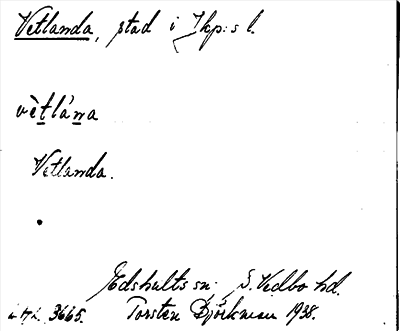 Vetlanda, stad i Jkp:s l.
vètlána
Vetlanda.
Edshults sn. S. Vedbo hd.
3665. Torsten Björkman 1938.